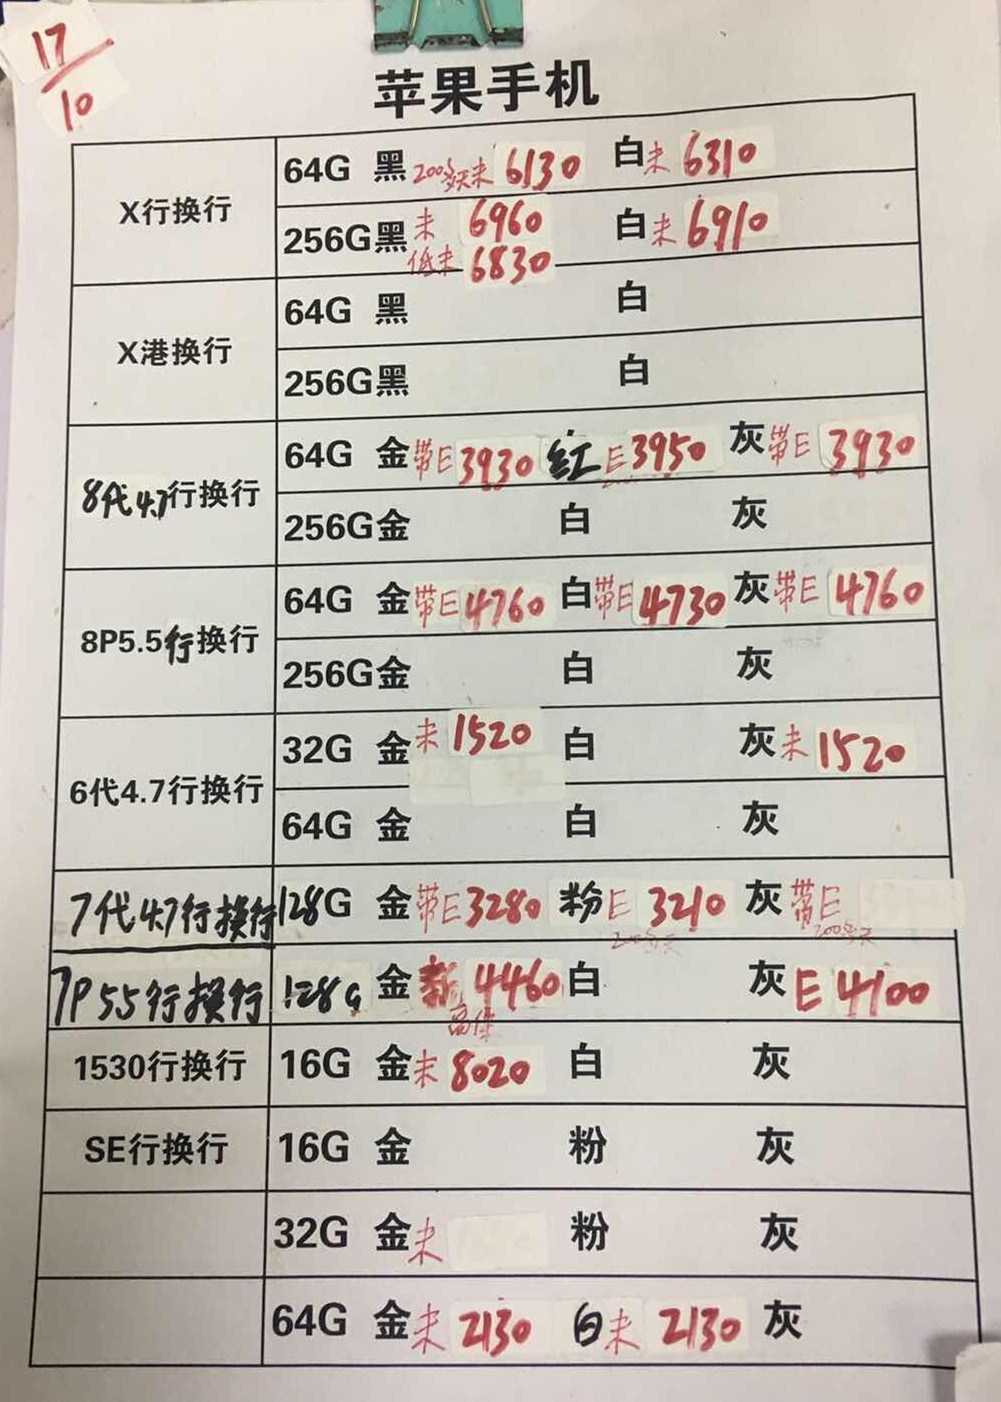 17/10
苹果手机
X行换行
64G 黑 200多天未 6130 白未 6310
256G黑 未 6960 白未 6910
低未 6830
X港换行
64G 黑 白
256G黑 白
8代4.7行换行
64G 金带E3930 红E3950 灰带E 3930
256G金 白 灰
8P5.5行换行
64G 金带E4760 白带E4730 灰带E 4760
256G金 白 灰
6代4.7行换行
32G 金未 1520 白 灰未 1520
64G 金 白 灰
7代4.7行换行 128G 金带E3280 粉E 3210 灰带E
200多天 200多天
7P55行换行 128G 金新 4460白 灰E 4100
高保
1530行换行 16G 金未 8020 白 灰
SE行换行 16G 金 粉 灰
32G 金未 粉 灰
64G 金未 2130 白未 2130 灰